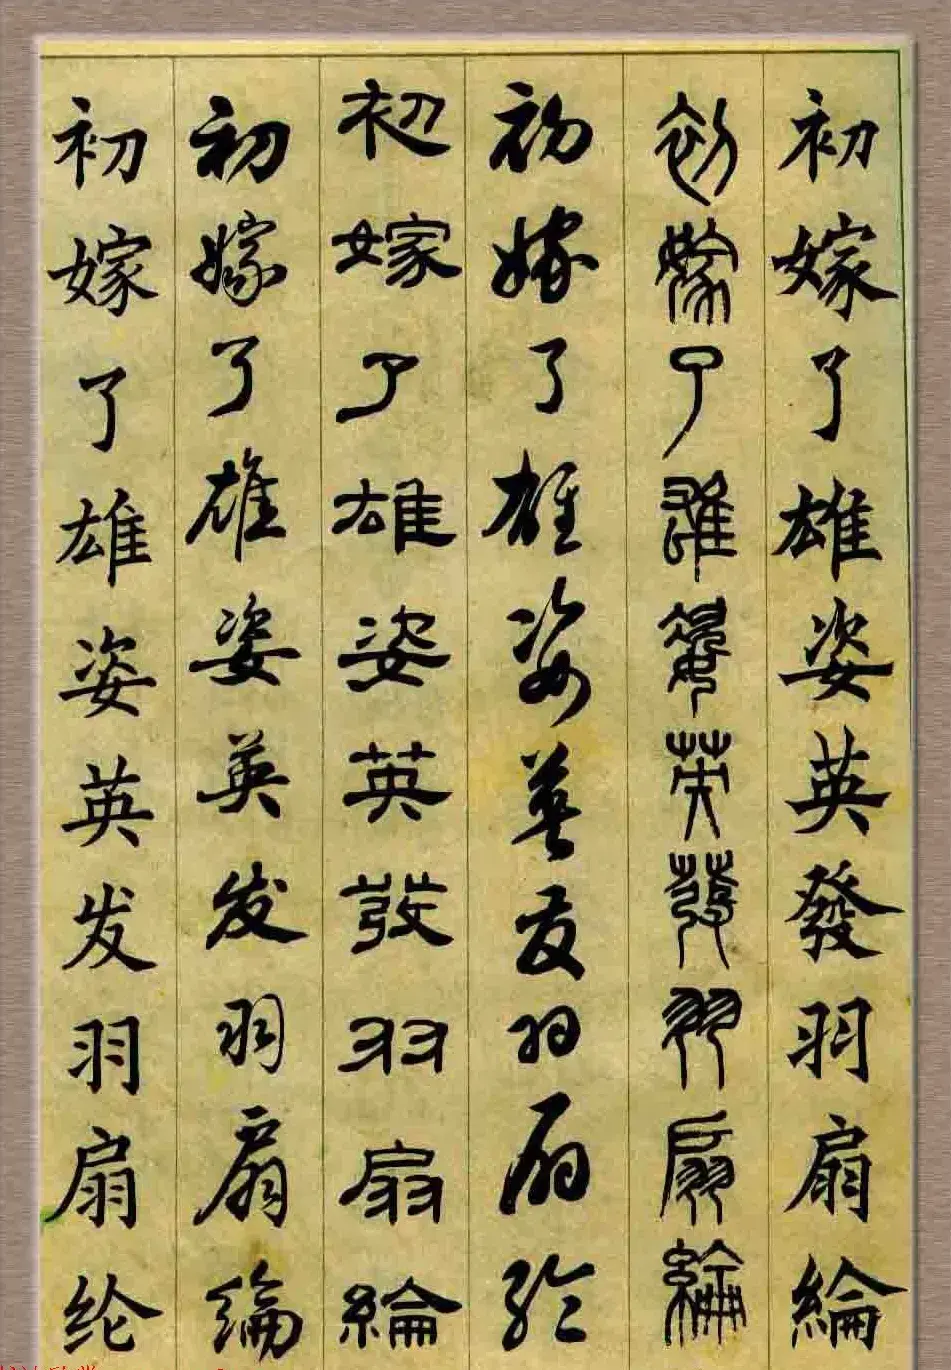 初嫁了雄姿英發羽扇綸
初嫁了雄姿英發羽扇綸
初嫁了雄姿英发羽扇纶
初嫁了雄姿英發羽扇綸
初嫁了雄姿英发羽扇綸
初嫁了雄姿英发羽扇纶